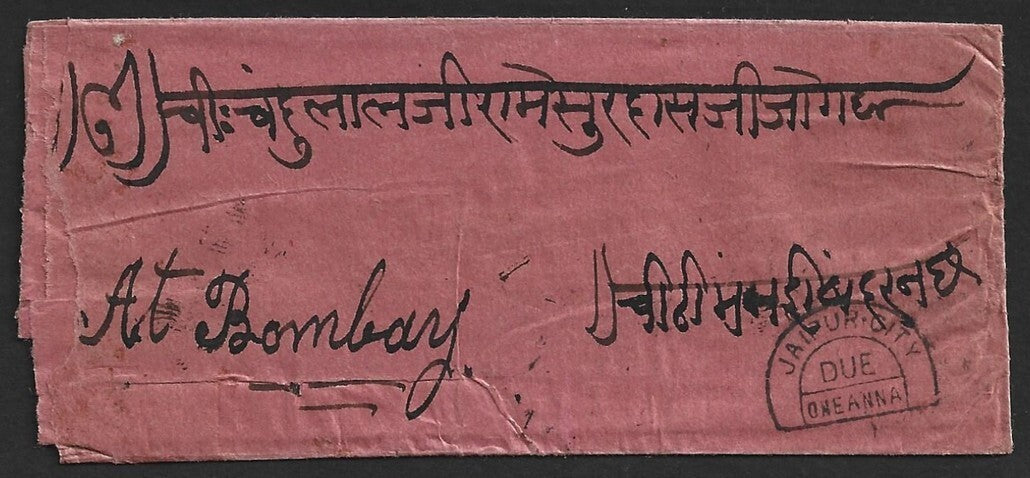 चीः चंदुलालजी रामेसुरदासजी जोग
At Bombay.
चीठी मुंबई बंदर
JAIPUR·CITY
DUE
ONE ANNA